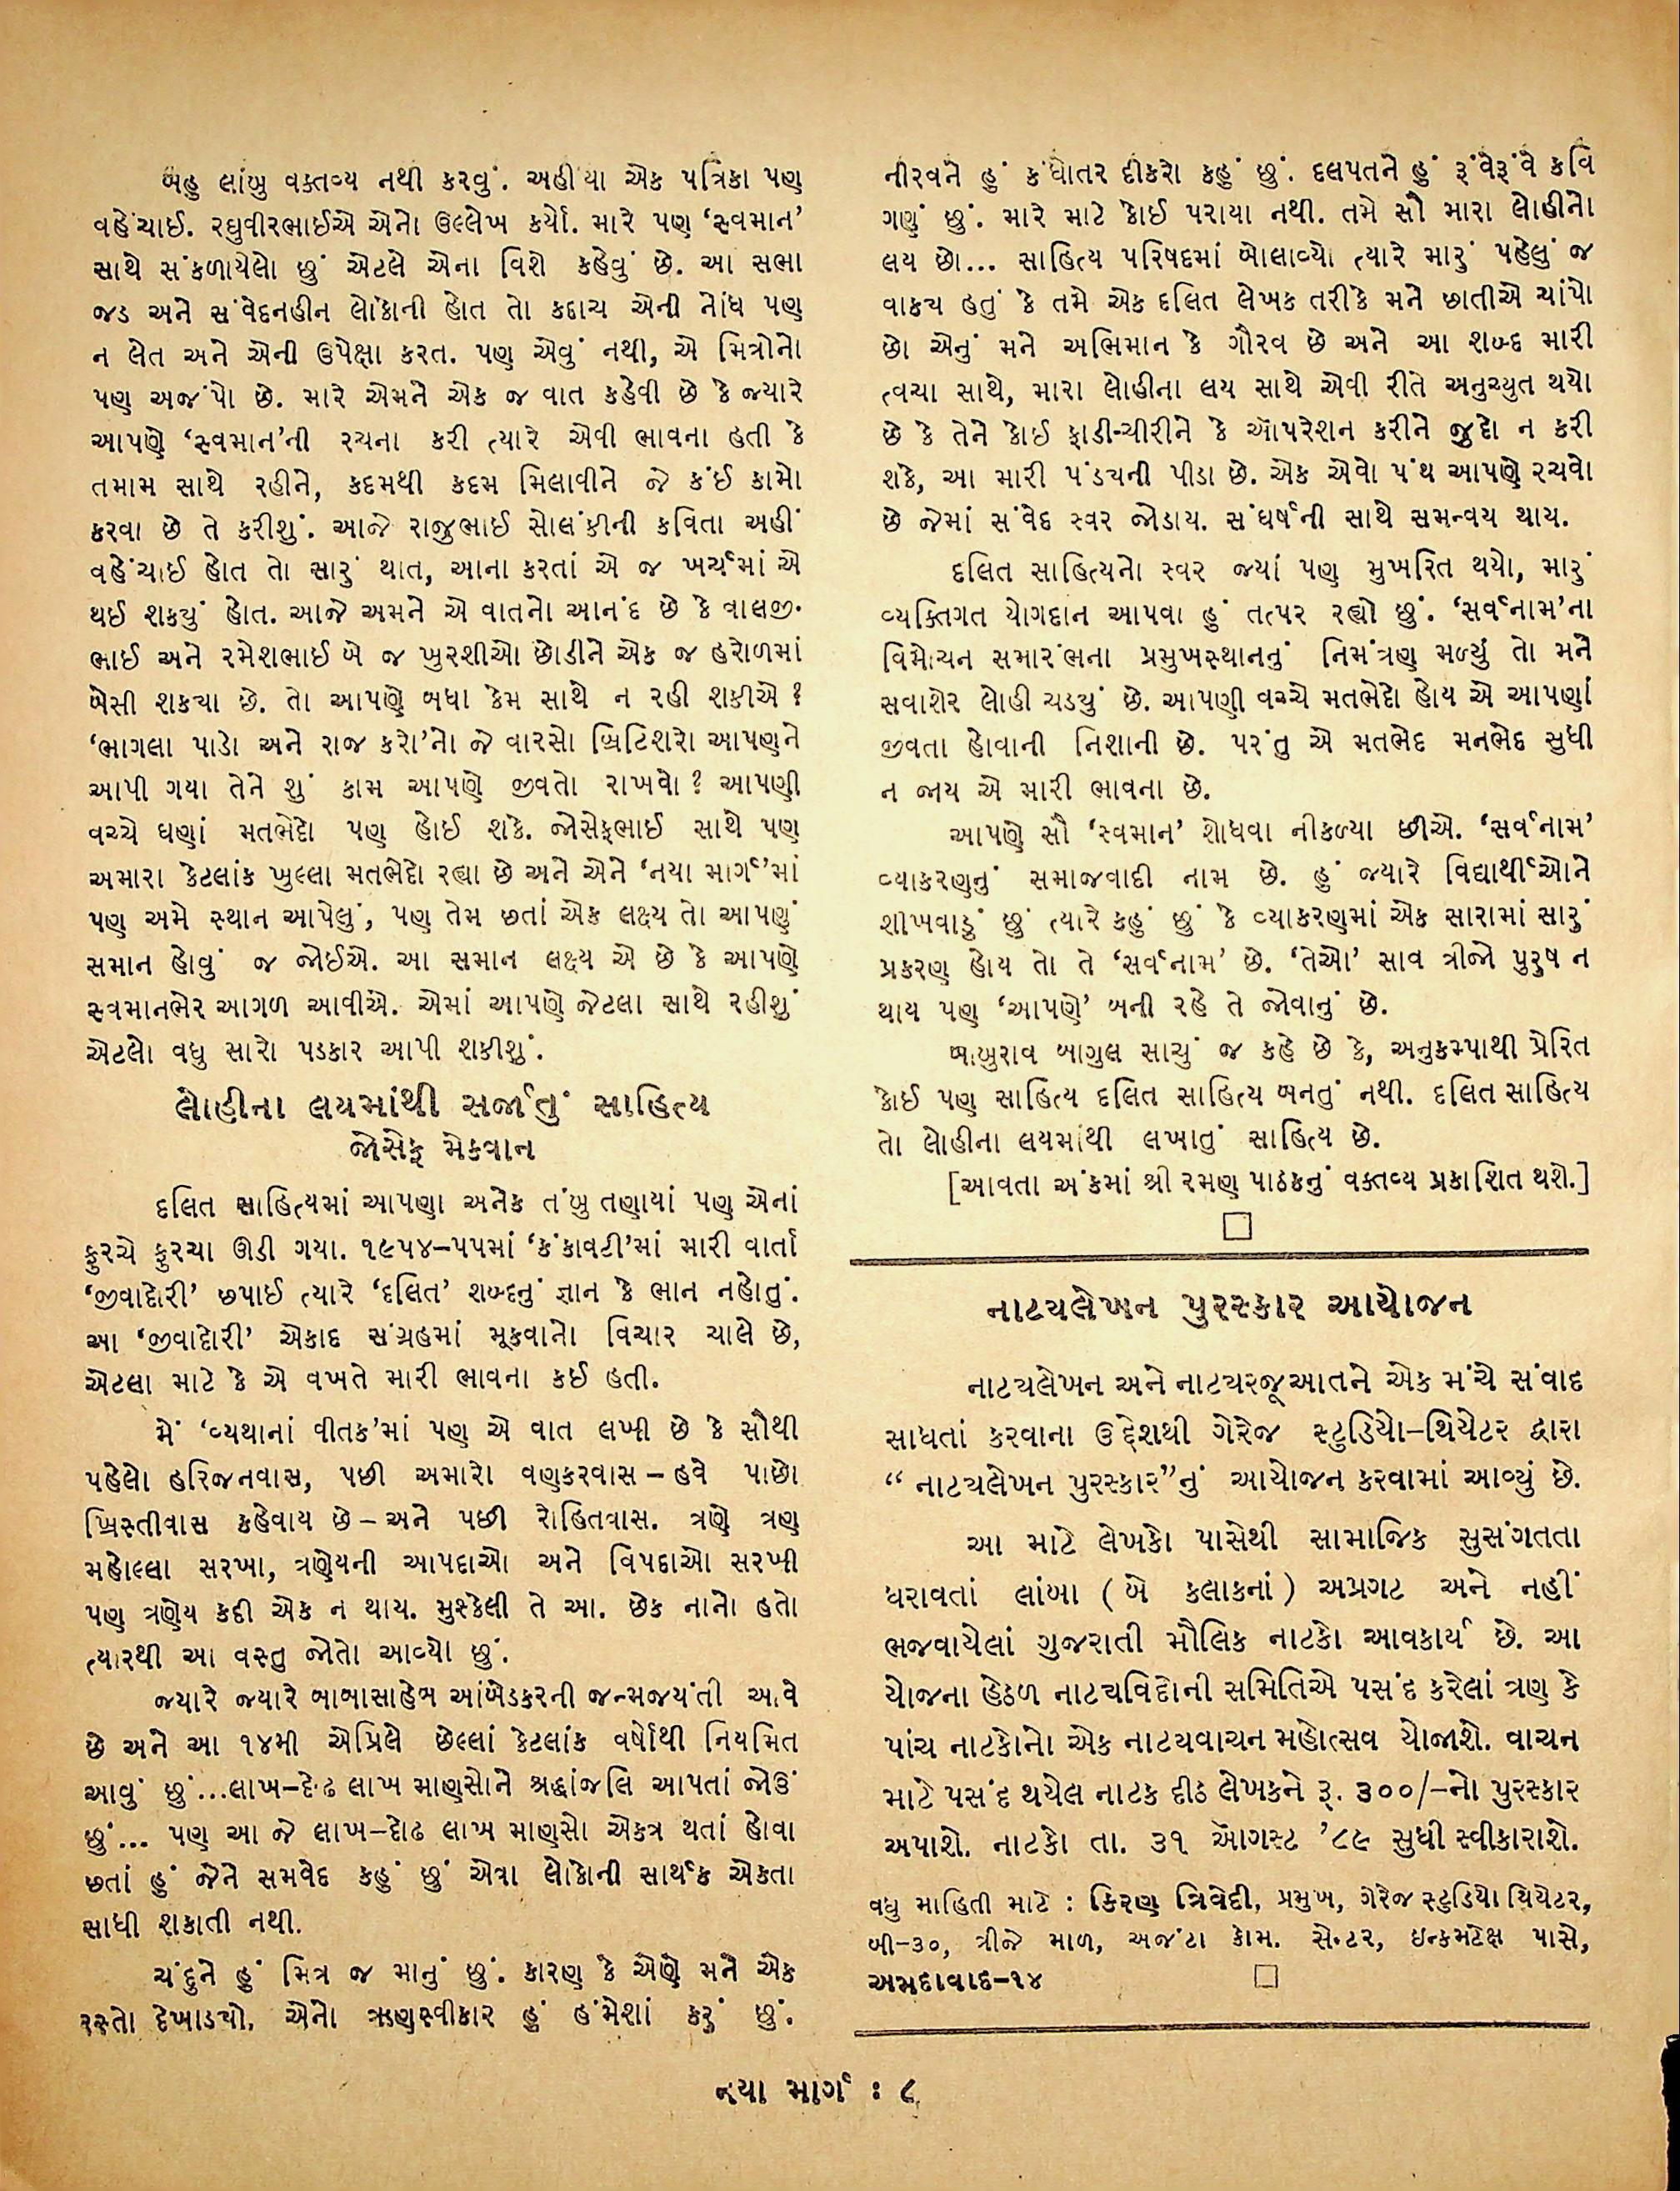 બહુ લાંબુ વક્તવ્ય નથી કરવું. અહીંયા એક પત્રિકા પણ
વહેંચાઈ. રઘુવીરભાઈએ એનો ઉલ્લેખ કર્યો. મારે પણ ‘સ્વમાન’
સાથે સંકળાયેલો છું એટલે એના વિશે કહેવું છે. આ સભા
જડ અને સંવેદનહીન લોકોની હોત તો કદાચ એની નોંધ પણ
ન લેત અને એની ઉપેક્ષા કરત. પણ એવું નથી, એ મિત્રોનો
પણ અજંપો છે. મારે એમને એક જ વાત કહેવી છે કે જ્યારે
આપણે ‘સ્વમાન’ની રચના કરી ત્યારે એવી ભાવના હતી કે
તમામ સાથે રહીને, કદમથી કદમ મિલાવીને જે કંઈ કામો
કરવા છે તે કરીશું. આજે રાજુભાઈ સોલંકીની કવિતા અહીં
વહેંચાઈ હોત તો સારું થાત, આના કરતાં એ જ ખર્ચમાં એ
થઈ શકયું હોત. આજે અમને એ વાતનો આનંદ છે કે વાલજી-
ભાઈ અને રમેશભાઈ બે જ ખુરશીઓ છોડીને એક જ હરોળમાં
બેસી શકયા છે. તો આપણે બધા કેમ સાથે ન રહી શકીએ ?
‘ભાગલા પાડો અને રાજ કરો’નો જે વારસો બ્રિટિશરો આપણને
આપી ગયા તેને શું કામ આપણે જીવતો રાખવો ? આપણી
વચ્ચે ઘણાં મતભેદો પણ હોઈ શકે. જોસેફભાઈ સાથે પણ
અમારા કેટલાંક ખુલ્લા મતભેદો રહ્યા છે અને એને ‘નયા માર્ગ’માં
પણ અમે સ્થાન આપેલું, પણ તેમ છતાં એક લક્ષ્ય તો આપણું
સમાન હોવું જ જોઈએ. આ સમાન લક્ષ્ય એ છે કે આપણે
સ્વમાનભેર આગળ આવીએ. એમાં આપણે જેટલા સાથે રહીશું
એટલો વધુ સારો પડકાર આપી શકીશું.
લોહીના લયમાંથી સર્જાતું સાહિત્ય
જોસેફ મેકવાન
દલિત સાહિત્યમાં આપણા અનેક તંબુ તણાયાં પણ એનાં
ફુરચે ફુરચા ઊડી ગયા. ૧૯૫૪–૫૫માં ‘કંકાવટી’માં મારી વાર્તા
‘જીવાદોરી’ છપાઈ ત્યારે ‘દલિત’ શબ્દનું જ્ઞાન કે ભાન નહોતું.
આ ‘જીવાદોરી’ એકાદ સંગ્રહમાં મૂકવાનો વિચાર ચાલે છે,
એટલા માટે કે એ વખતે મારી ભાવના કઈ હતી.
મેં ‘વ્યથાનાં વીતક’માં પણ એ વાત લખી છે કે સૌથી
પહેલો હરિજનવાસ, પછી અમારો વણકરવાસ – હવે પાછો
ખ્રિસ્તીવાસ કહેવાય છે – અને પછી રોહિતવાસ. ત્રણે ત્રણ
મહોલ્લા સરખા, ત્રણેયની આપદાઓ અને વિપદાઓ સરખી
પણ ત્રણેય કદી એક ન થાય. મુશ્કેલી તે આ. છેક નાનો હતો
ત્યારથી આ વસ્તુ જોતો આવ્યો છું.
જ્યારે જ્યારે બાબાસાહેબ આંબેડકરની જન્મજયંતી આવે
છે અને આ ૧૪મી એપ્રિલે છેલ્લાં કેટલાંક વર્ષોથી નિયમિત
આવું છું...લાખ–દોઢ લાખ માણસોને શ્રદ્ધાંજલિ આપતાં જોઉં
છું... પણ આ જે લાખ–દોઢ લાખ માણસો એકત્ર થતાં હોવા
છતાં હું જેને સમવેદ કહું છું એવા લોકોની સાર્થક એકતા
સાધી શકાતી નથી.
ચંદુને હું મિત્ર જ માનું છું. કારણ કે એણે મને એક
રસ્તો દેખાડયો. એનો ઋણસ્વીકાર હું હંમેશાં કરું છું.
નીરવને હું કંધોતર દીકરો કહું છું. દલપતને હું રૂંવેરૂંવે કવિ
ગણું છું. મારે માટે કોઈ પરાયા નથી. તમે સૌ મારા લોહીનો
લય છો... સાહિત્ય પરિષદમાં બોલાવ્યો ત્યારે મારું પહેલું જ
વાકય હતું કે તમે એક દલિત લેખક તરીકે મને છાતીએ ચાંપો
છો એનું મને અભિમાન કે ગૌરવ છે અને આ શબ્દ મારી
ત્વચા સાથે, મારા લોહીના લય સાથે એવી રીતે અનુચ્યુત થયો
છે કે તેને કોઈ ફાડી-ચીરીને કે ઓપરેશન કરીને જુદો ન કરી
શકે, આ મારી પંડયની પીડા છે. એક એવો પંથ આપણે રચવો
છે જેમાં સંવેદ સ્વર જોડાય. સંઘર્ષની સાથે સમન્વય થાય.
દલિત સાહિત્યનો સ્વર જ્યાં પણ મુખરિત થયો, મારું
વ્યક્તિગત યોગદાન આપવા હું તત્પર રહ્યો છું. ‘સર્વનામ’ના
વિમોચન સમારંભના પ્રમુખસ્થાનનું નિમંત્રણ મળ્યું તો મને
સવાશેર લોહી ચડયું છે. આપણી વચ્ચે મતભેદો હોય એ આપણાં
જીવતા હોવાની નિશાની છે. પરંતુ એ મતભેદ મનભેદ સુધી
ન જાય એ મારી ભાવના છે.
આપણે સૌ ‘સ્વમાન’ શોધવા નીકળ્યા છીએ. ‘સર્વનામ’
વ્યાકરણનું સમાજવાદી નામ છે. હું જ્યારે વિદ્યાર્થીઓને
શીખવાડું છું ત્યારે કહું છું કે વ્યાકરણમાં એક સારામાં સારું
પ્રકરણ હોય તો તે ‘સર્વનામ’ છે. ‘તેઓ’ સાવ ત્રીજો પુરુષ ન
થાય પણ ‘આપણે’ બની રહે તે જોવાનું છે.
બાબુરાવ બાગુલ સાચું જ કહે છે કે, અનુકમ્પાથી પ્રેરિત
કોઈ પણ સાહિત્ય દલિત સાહિત્ય બનતું નથી. દલિત સાહિત્ય
તો લોહીના લયમાંથી લખાતું સાહિત્ય છે.
[આવતા અંકમાં શ્રી રમણ પાઠકનું વક્તવ્ય પ્રકાશિત થશે.]
નાટયલેખન પુરસ્કાર આયોજન
નાટયલેખન અને નાટયરજૂઆતને એક મંચે સંવાદ
સાધતાં કરવાના ઉદ્દેશથી ગેરેજ સ્ટુડિયો–થિયેટર દ્વારા
“ નાટયલેખન પુરસ્કાર”નું આયોજન કરવામાં આવ્યું છે.
આ માટે લેખકો પાસેથી સામાજિક સુસંગતતા
ધરાવતાં લાંબા ( બે કલાકનાં ) અપ્રગટ અને નહીં
ભજવાયેલાં ગુજરાતી મૌલિક નાટકો આવકાર્ય છે. આ
યોજના હેઠળ નાટયવિદોની સમિતિએ પસંદ કરેલાં ત્રણ કે
પાંચ નાટકોનો એક નાટયવાચન મહોત્સવ યોજાશે. વાચન
માટે પસંદ થયેલ નાટક દીઠ લેખકને રૂ. ૩૦૦/–નો પુરસ્કાર
અપાશે. નાટકો તા. ૩૧ ઓગસ્ટ ’૮૯ સુધી સ્વીકારાશે.
વધુ માહિતી માટે : કિરણ ત્રિવેદી, પ્રમુખ, ગેરેજ સ્ટુડિયો થિયેટર,
બી–૩૦, ત્રીજે માળ, અજંટા કોમ. સેન્ટર, ઇન્કમટેક્ષ પાસે,
અમદાવાદ–૧૪
નયા માર્ગ : ૮